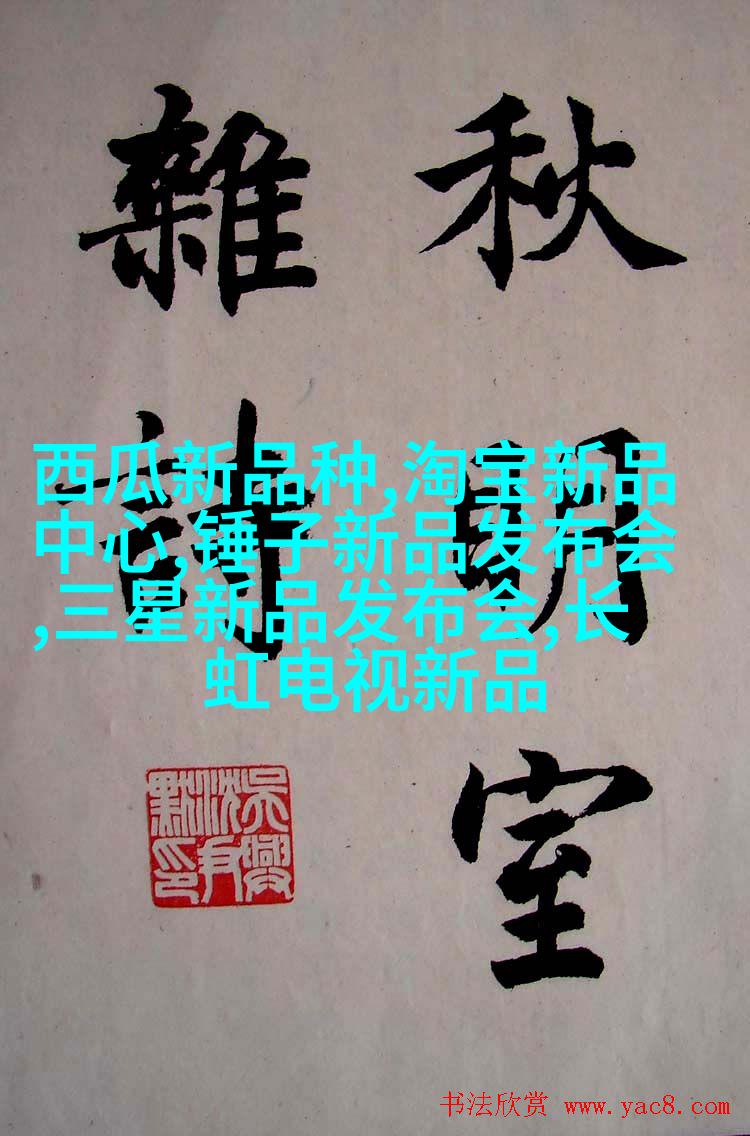 秋明室
雜詩
西瓜新品种,淘宝新品
中心,锤子新品发布会
,三星新品发布会,长
虹电视新品
吳興沈尹默印
书法欣赏 www.yac8.com